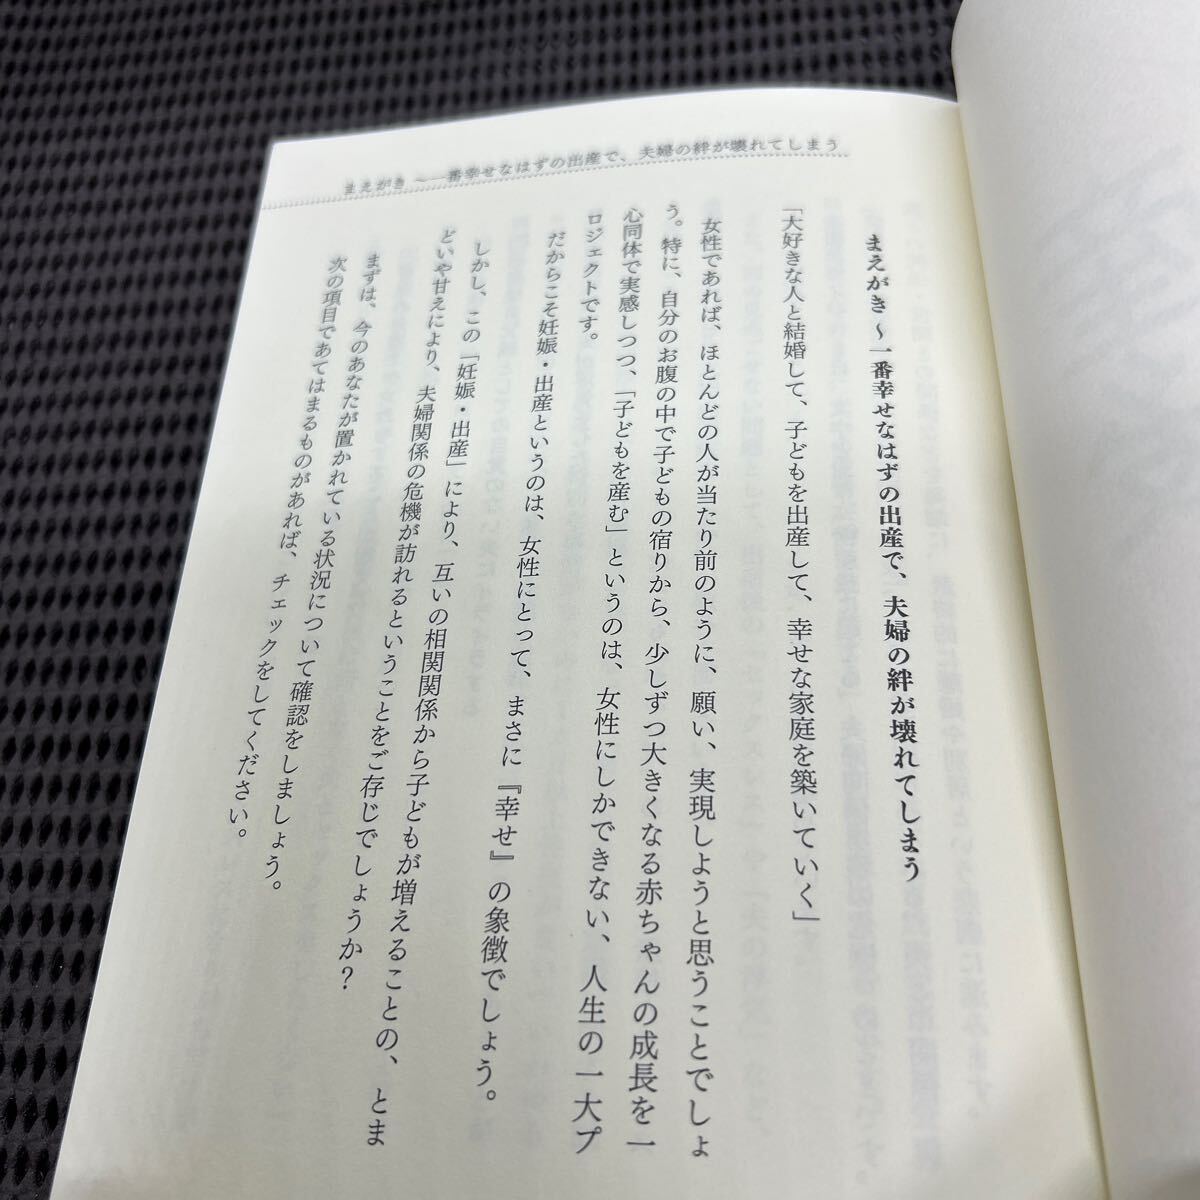 まえがき ～一番幸せなはずの出産で、夫婦の絆が壊れてしまう
まえがき ～一番幸せなはずの出産で、夫婦の絆が壊れてしまう
「大好きな人と結婚して、子どもを出産して、幸せな家庭を築いていく」
女性であれば、ほとんどの人が当たり前のように、願い、実現しようと思うことでしょ
う。特に、自分のお腹の中で子どもの宿りから、少しずつ大きくなる赤ちゃんの成長を一
心同体で実感しつつ、「子どもを産む」というのは、女性にしかできない、人生の一大プ
ロジェクトです。
だからこそ妊娠・出産というのは、女性にとって、まさに『幸せ』の象徴でしょう。
しかし、この「妊娠・出産」により、互いの相関関係から子どもが増えることの、とま
どいや甘えにより、夫婦関係の危機が訪れるということをご存じでしょうか？
まずは、今のあなたが置かれている状況について確認をしましょう。
次の項目であてはまるものがあれば、チェックをしてください。